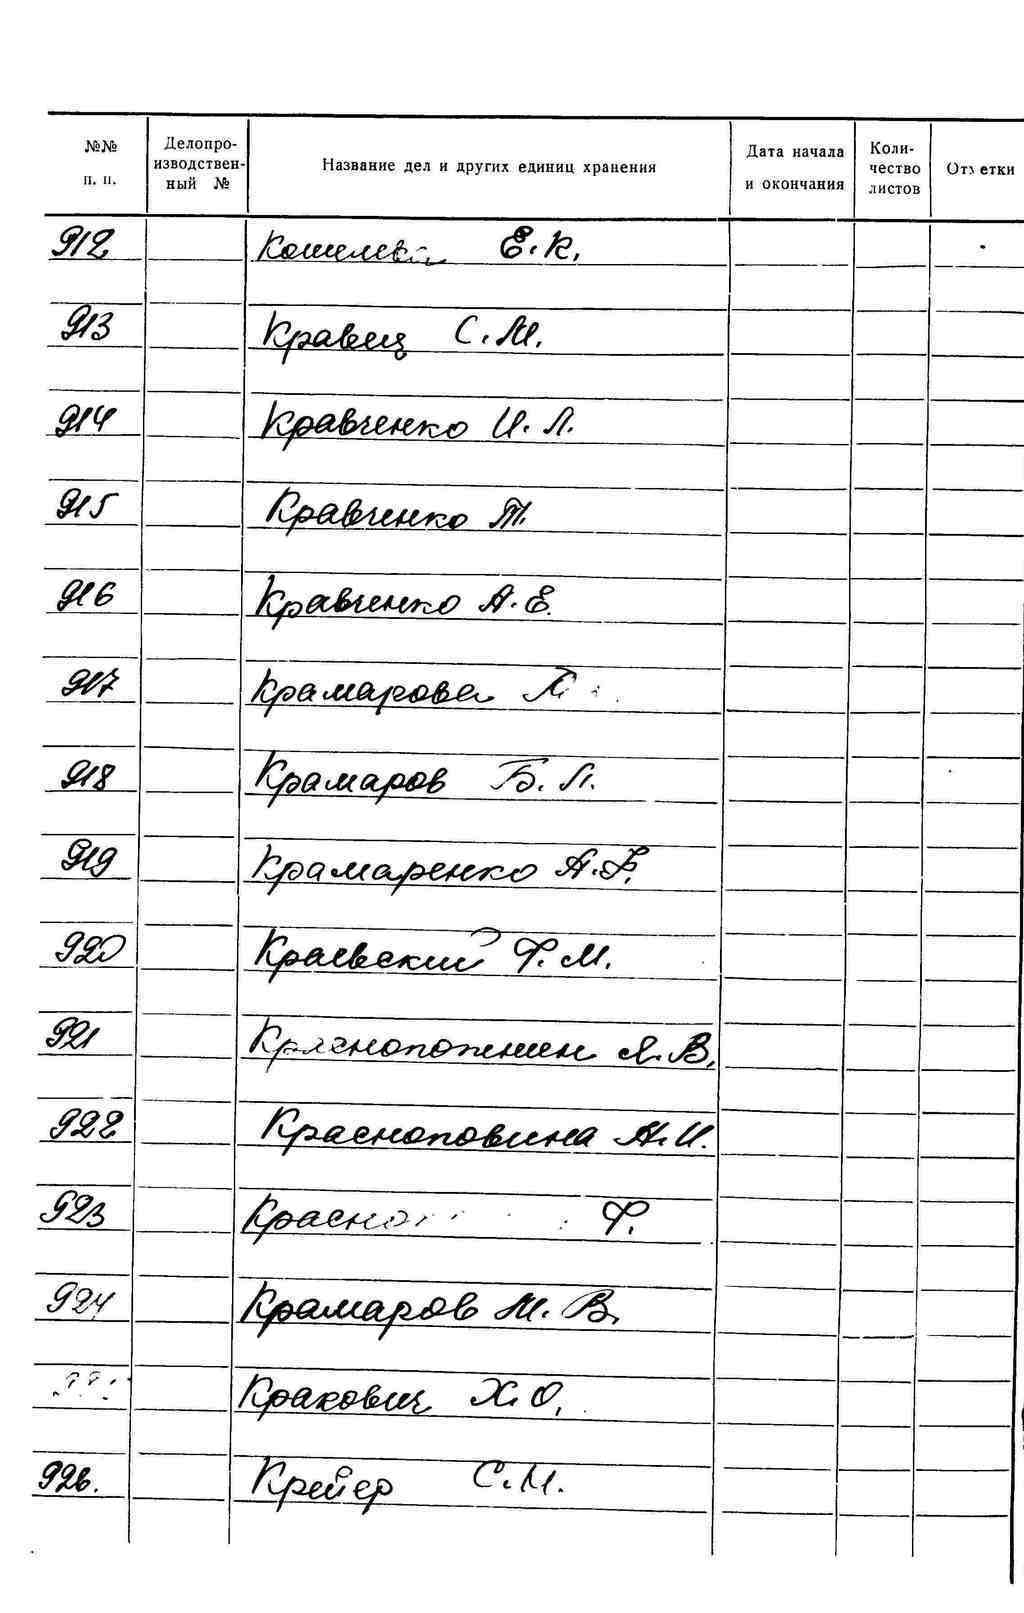 №№ п. п. Делопроизводственный № Название дел и других единиц хранения Дата начала и окончания Количество листов Отметки
912 Е. К.
913 Кравец С. М.
914 Кравченко И. Л.
915 Кравченко М.
916 Кравченко А. Е.
917 Крамарова
918 Крамаров Б. Л.
919 Крамаренко А. Ф.
920 Краевский Ф. М.
921 В.
922 Красноповина А. И.
923 Ф.
924 Крамаров М. В.
Кракович Х. О.
926. Крейер С. М.